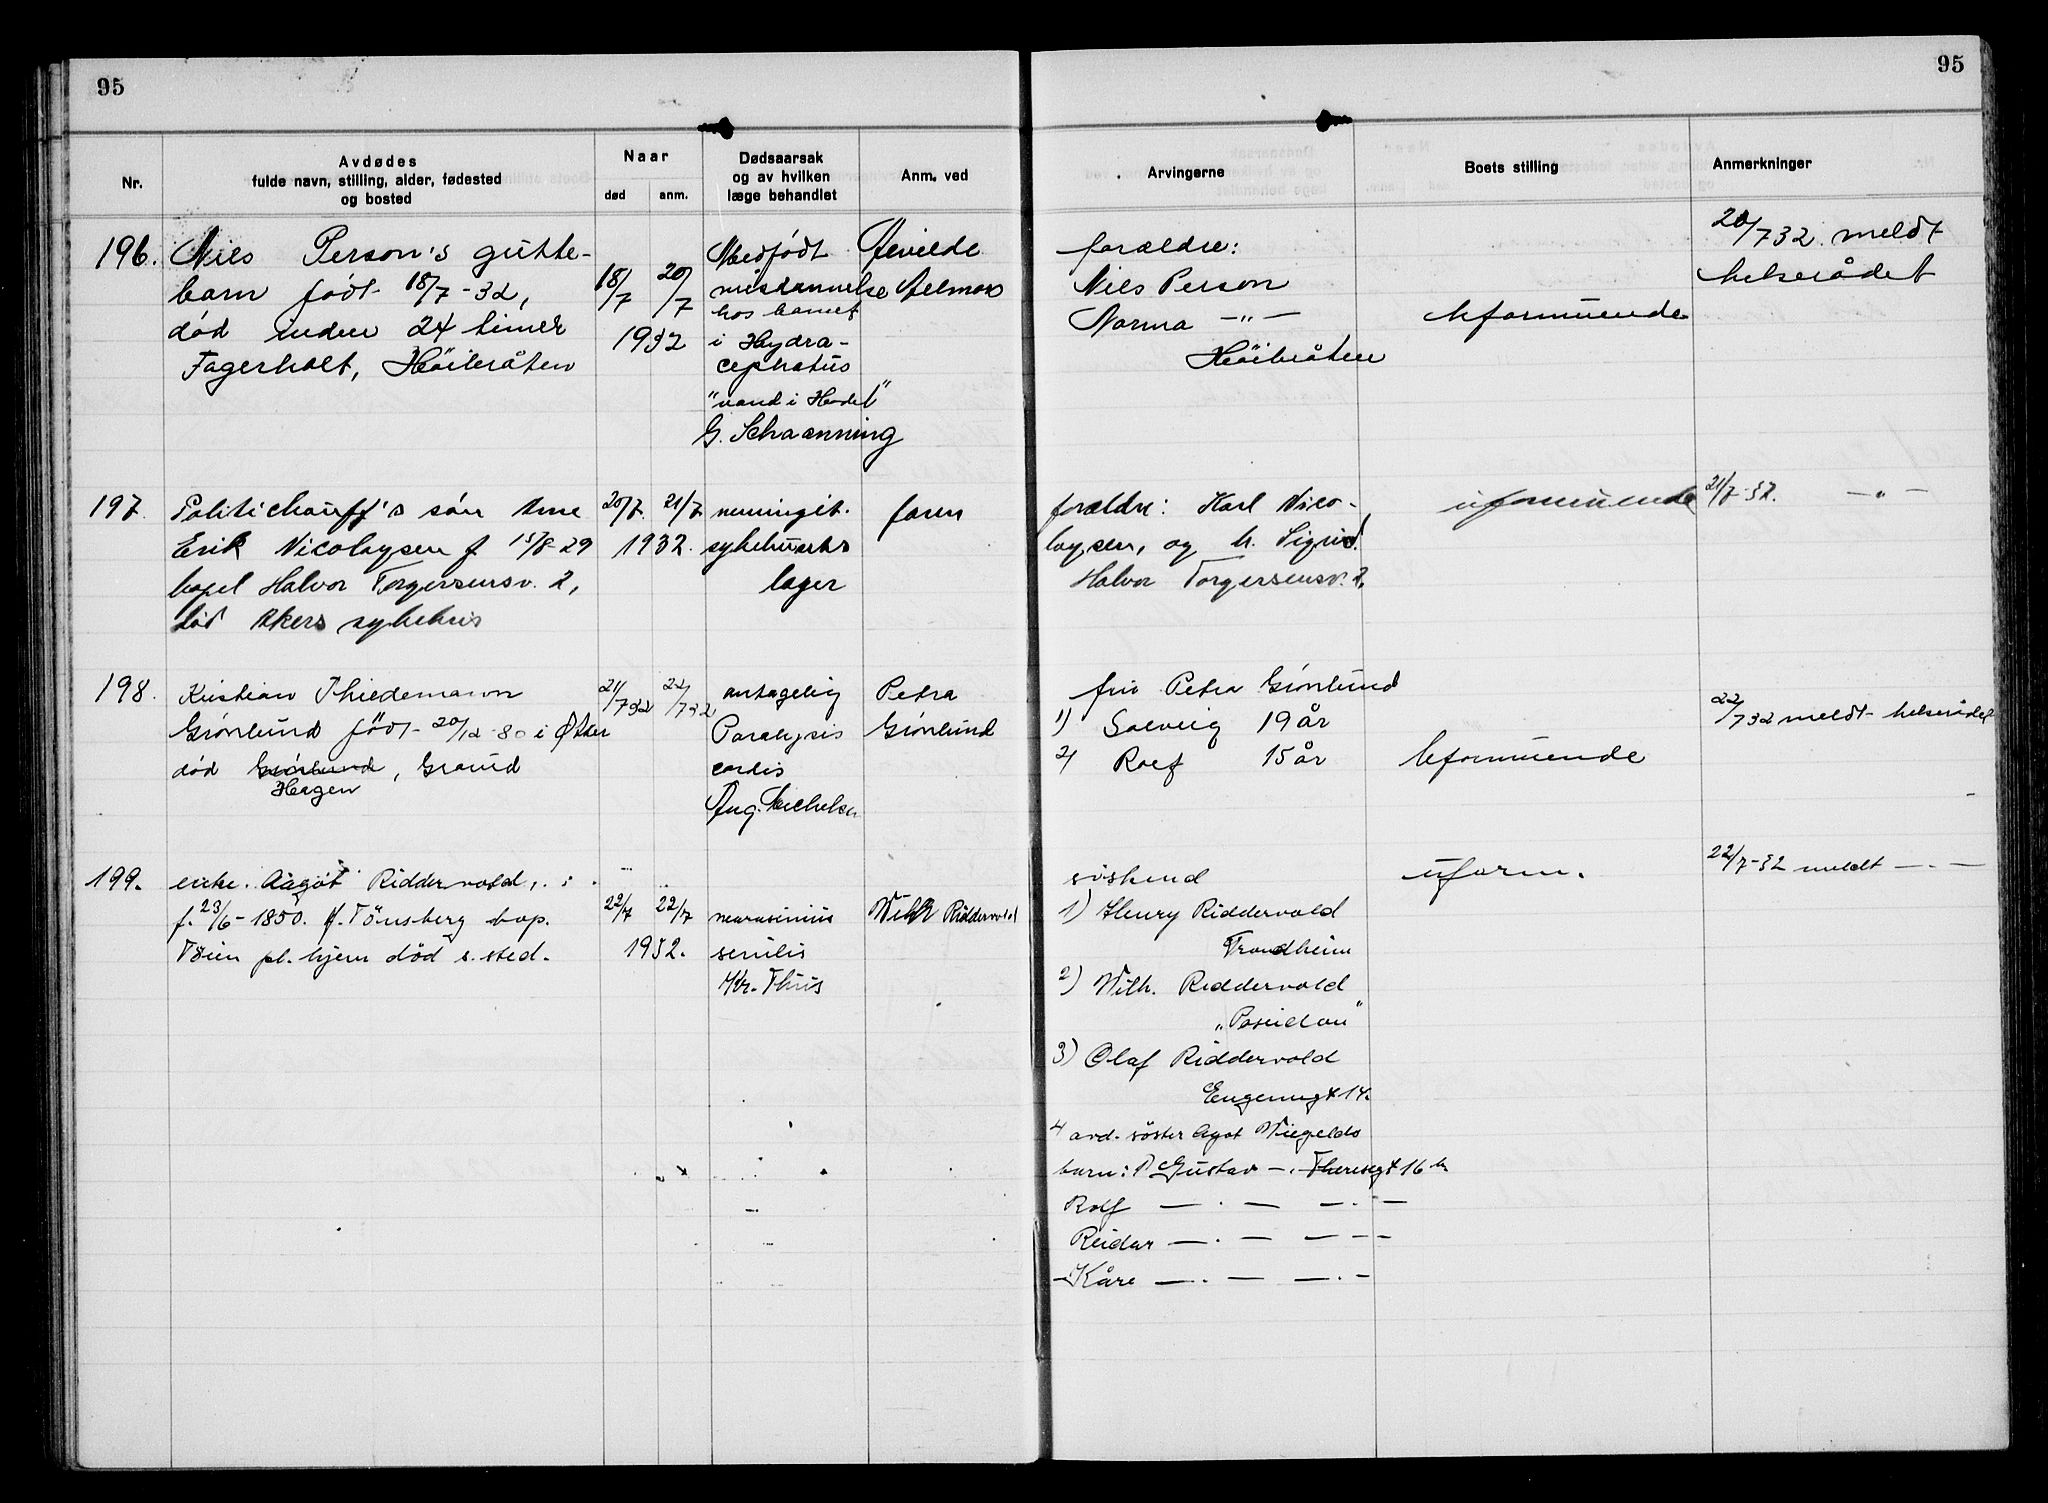 95
95
Nr.
Avdødes
fulde navn, stilling, alder, fødested
og bosted
Naar
død
anm.
Dødsaarsak
og av hvilken
læge behandlet
Anm. ved
Arvingerne
Boets stilling
Anmerkninger
196. Niels Person's gutte-
barn født 18/7-32,
død inden 24 timer
Fagerholt, Höibråten
18/7 20/7
1932
Medfødt
misdannelse
hos barnet
i Hydra-
cephalus
"vand i Hodet"
G. Schaanning
forældre:
Niels Person
Norma —"—
Höibråten
Uformuende
20/7 32 meldt
helserådet
197. Politichauff's sön Arne
Erik Nicolaysen f. 15/8-29
bopel Halvor Torgersensv. 2,
död Akers sykehus
20/7. 21/7
1932.
meningit.
sykehusets
læger
faren
forældre: Karl Nico-
laysen, og h. Sigrid.
Halvor Torgersensv. 2,
uformuende
21/7-32. —"—
198. Kristian Thiedemann
Grönlund födt 20/12-80 i Ø
död Grönlund, Grorud
Haugen
21/7 32 22/7 32
antagelig
Paralysis
cordis
Aug. Michelsen
Petra
Grönlund
fru Petra Grönlund
1) Solveig 19 år
2) Rolf 15 år
Uformuende
22/7 32 meldt helserådet
199. enke. Aagot Riddervold,
f. 23/6-1850. f. Tönsberg bop.
Töien pl. hjem död s. sted.
22/7 22/7
1932.
marasimus
senilis
Kr. Thiis
Wilh Riddervold
söskend
1) Henry Riddervold
Trondheim
2) Wilh. Riddervold
"Poseidon"
3) Olaf Riddervold
Eugeniegt 14.
4 avd. söster Agot Wiegelds
barn: Gustav —.— Theresegt 16 b
Rolf —.— —.—
Reidar —.— — —
Kåre —.— —.—
uform.
22/7-32 meldt —.—